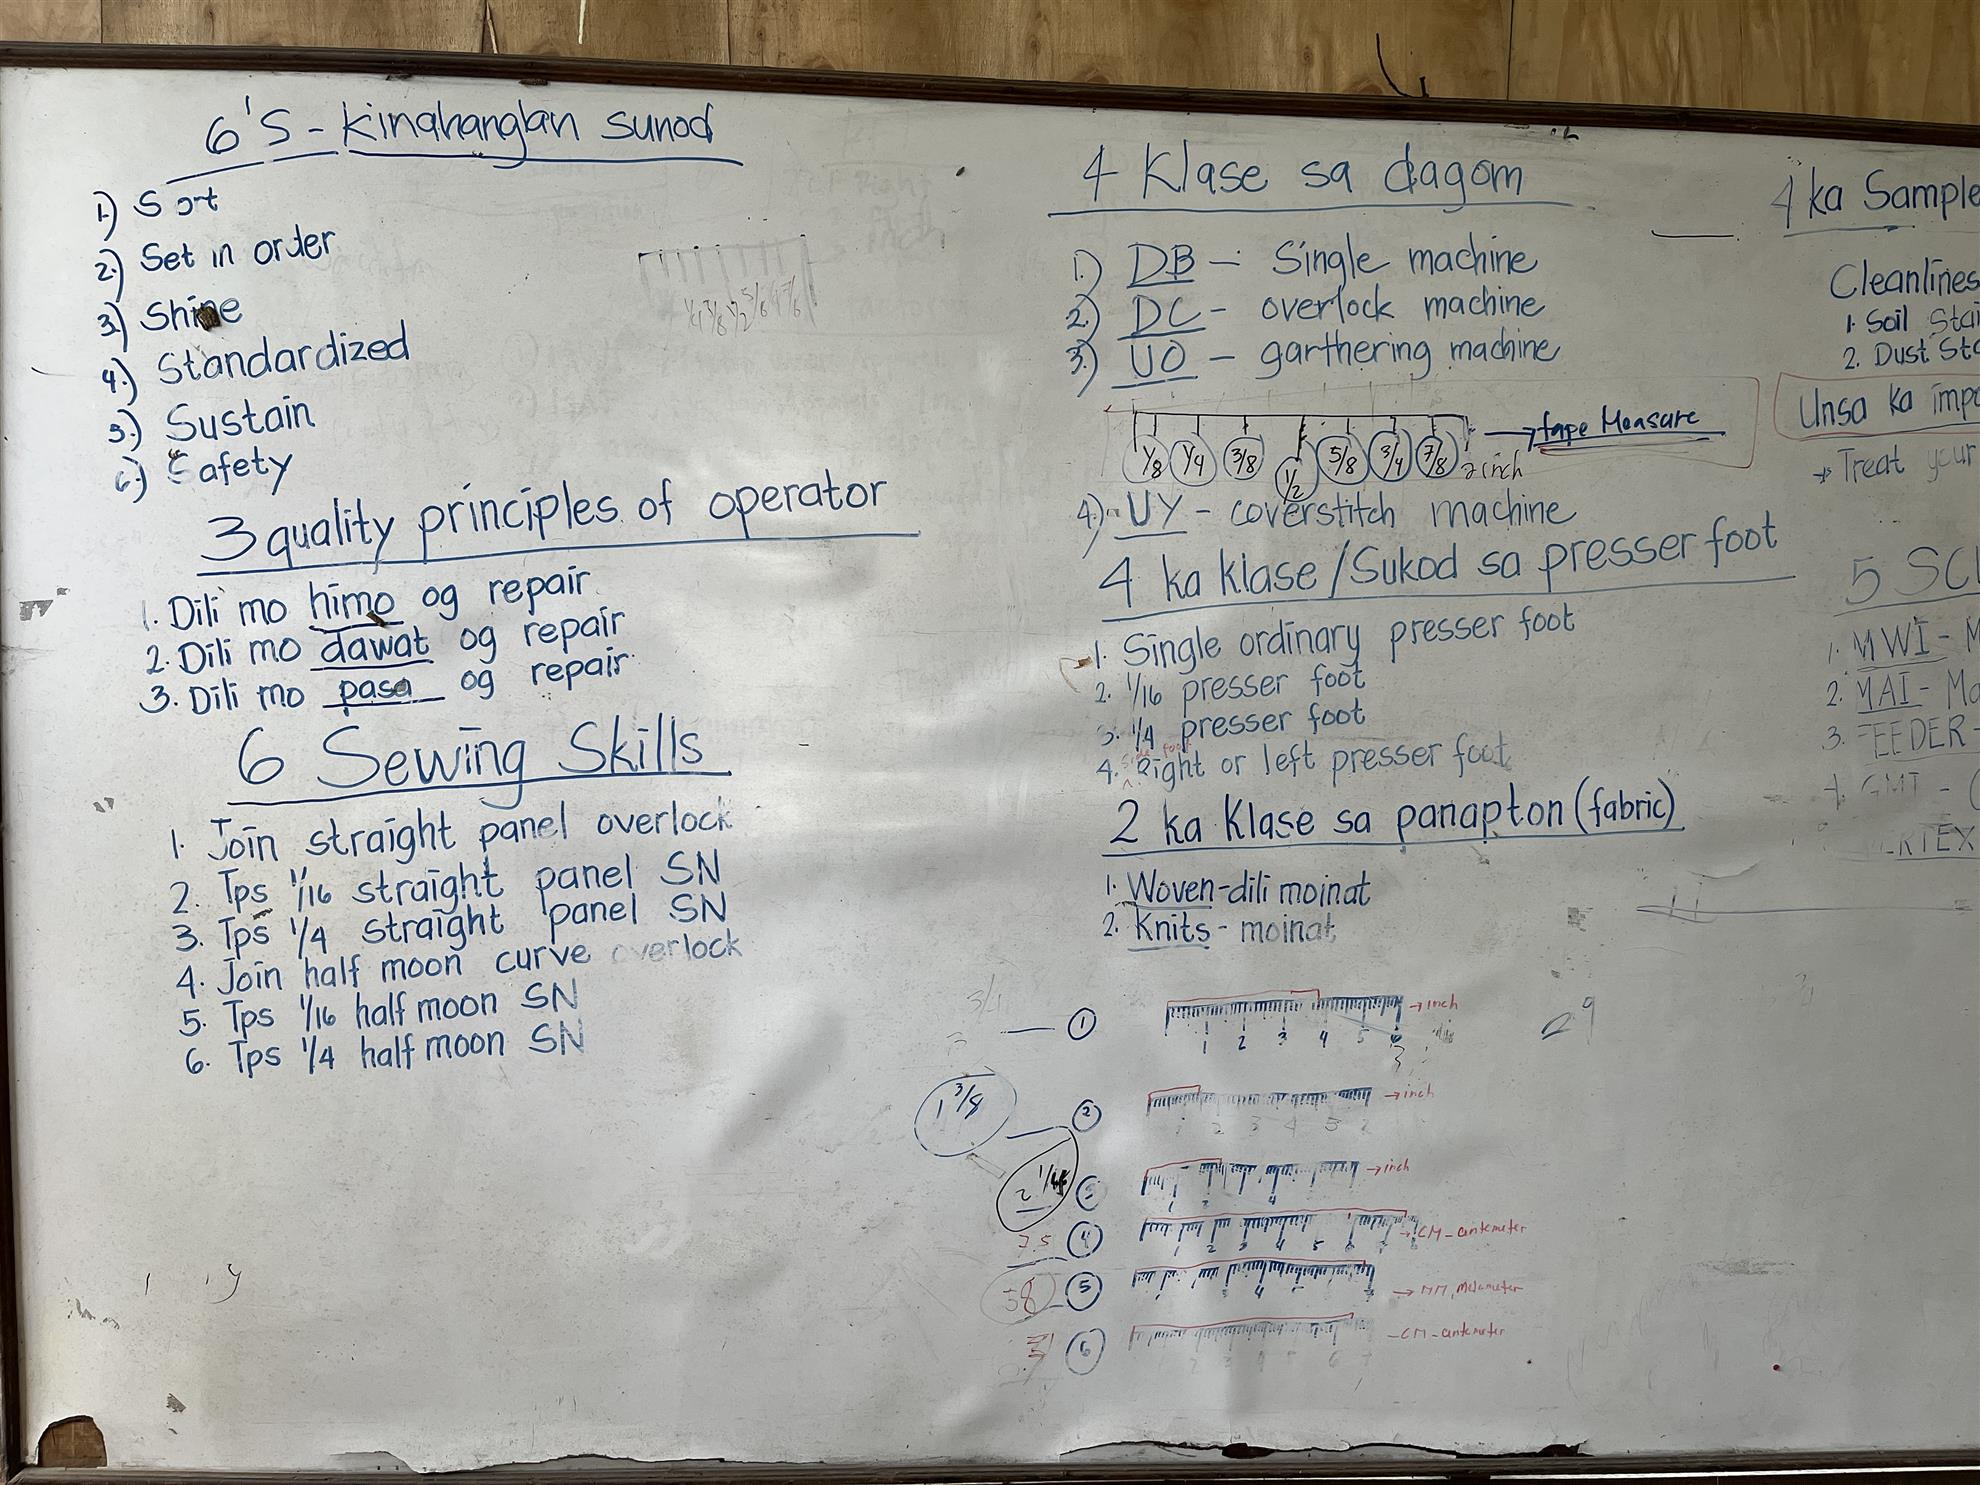 6'S - kinahanglan sunod
1.) Sort
2.) Set in order
3.) Shine
4.) Standardized
5.) Sustain
6.) Safety
3 quality principles of operator
1. Dili mo himo og repair
2. Dili mo dawat og repair
3. Dili mo pasa og repair
6 Sewing Skills
1. Join straight panel overlock
2. Tps 1/16 straight panel SN
3. Tps 1/4 straight panel SN
4. Join half moon curve overlock
5. Tps 1/16 half moon SN
6. Tps 1/4 half moon SN
4 Klase sa dagom
1.) DB - Single machine
2.) DC - overlock machine
3.) UO - garthering machine
1/8 1/4 3/8 1/2 5/8 3/4 7/8 inch
tape Measure
4.) UY - coverstitch machine
4 ka klase/Sukod sa presser foot
1. Single ordinary presser foot
2. 1/16 presser foot
3. 1/4 presser foot
4. Right or left presser foot
2 ka Klase sa panapton (fabric)
1. Woven - dili moinat
2. Knits - moinat
1 1 2 3 4 5 6 inch
1 3/8 2 1 2 3 4 5 inch
2 3 inch
7.5 4 1 2 3 4 5 CM - centemeter
58 5 MM,
6 CM - centemeter
29
4 ka Sample
Cleanlines
1. Soil Stai
2. Dust Sta
Unsa ka impo
Treat your
5 SC
1. MWI - M
2. MAI - Ma
3. FEEDER -
4. GMT -